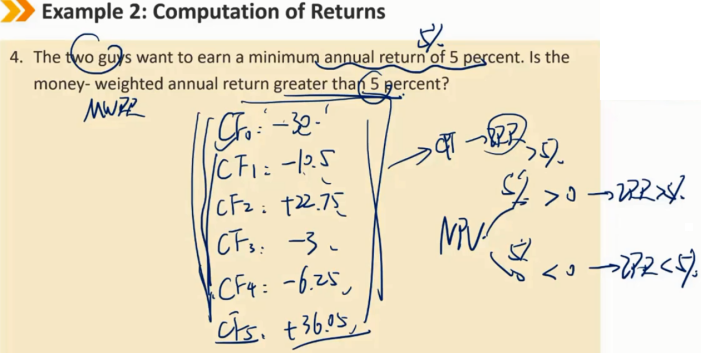 Example 2: Computation of Returns
5%
4. The two guys want to earn a minimum annual return of 5 percent. Is the
money- weighted annual return greater than 5 percent?
MWRR
CF0: -30.
CF1: -10.5
CF2: +22.75
CF3: -3
CF4: -6.25
CF5. +36.05
CPT → IRR >5%.
NPV
5% >0 → IRR>5%.
5% <0 → IRR<5%.